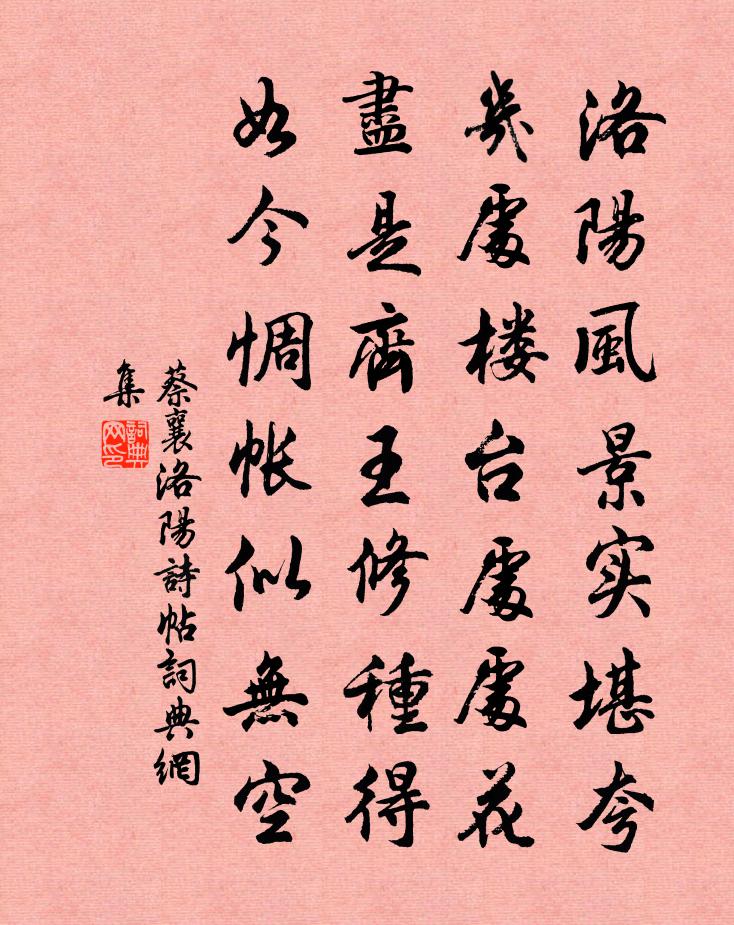 洛陽風景实堪夸
幾處楼台處處花
盡是齊王修種得
如今惆帐似無空
蔡襄洛陽詩帖詞典網
集
詞典
网印